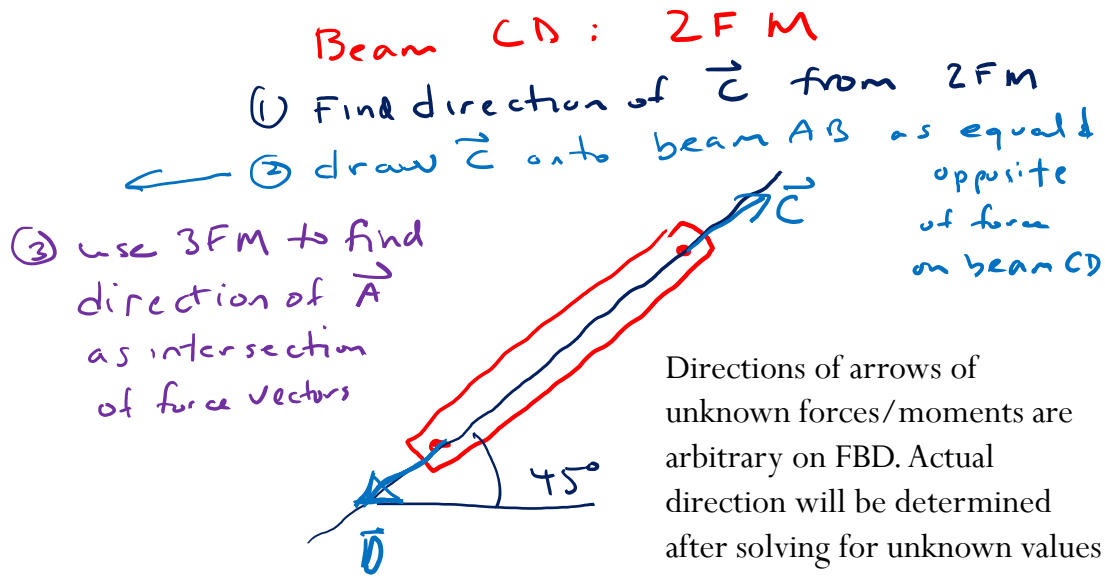 Beam CD: 2FM
① Find direction of C⃗ from 2FM
② draw C⃗ onto beam AB as equal &
opposite
of force
on beam CD
③ use 3FM to find
direction of A⃗
as intersection
of force vectors
C⃗
Directions of arrows of
unknown forces/moments are
arbitrary on FBD. Actual
direction will be determined
after solving for unknown values
45°
D⃗